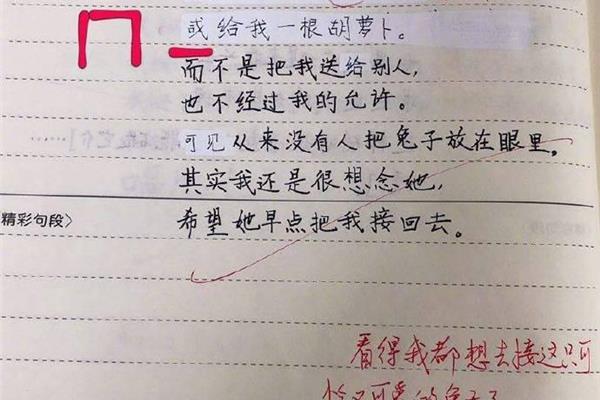 或给我一根胡萝卜。
而不是把我送给别人,
也不经过我的允许。
可见从来没有人把兔子放在眼里。
其实我还是很想念她,
精彩句段〉
希望她早点把我接回去。
看得我都想去接这只可